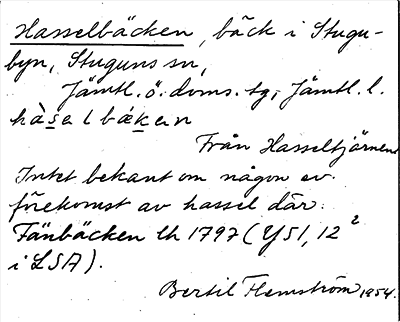 Hasselbäcken, bäck i Stugu-
byn, Stuguns sn,
Jämtl. ö. doms. tg, Jämtl. l.
hàsel bæken
Från Hasseltjärnen
Intet bekant om någon ev.
förekomst av hassel där.
Fänbäcken lh 1797 (Y51, 12²
i LSA).
Bertil Flemström 1954.